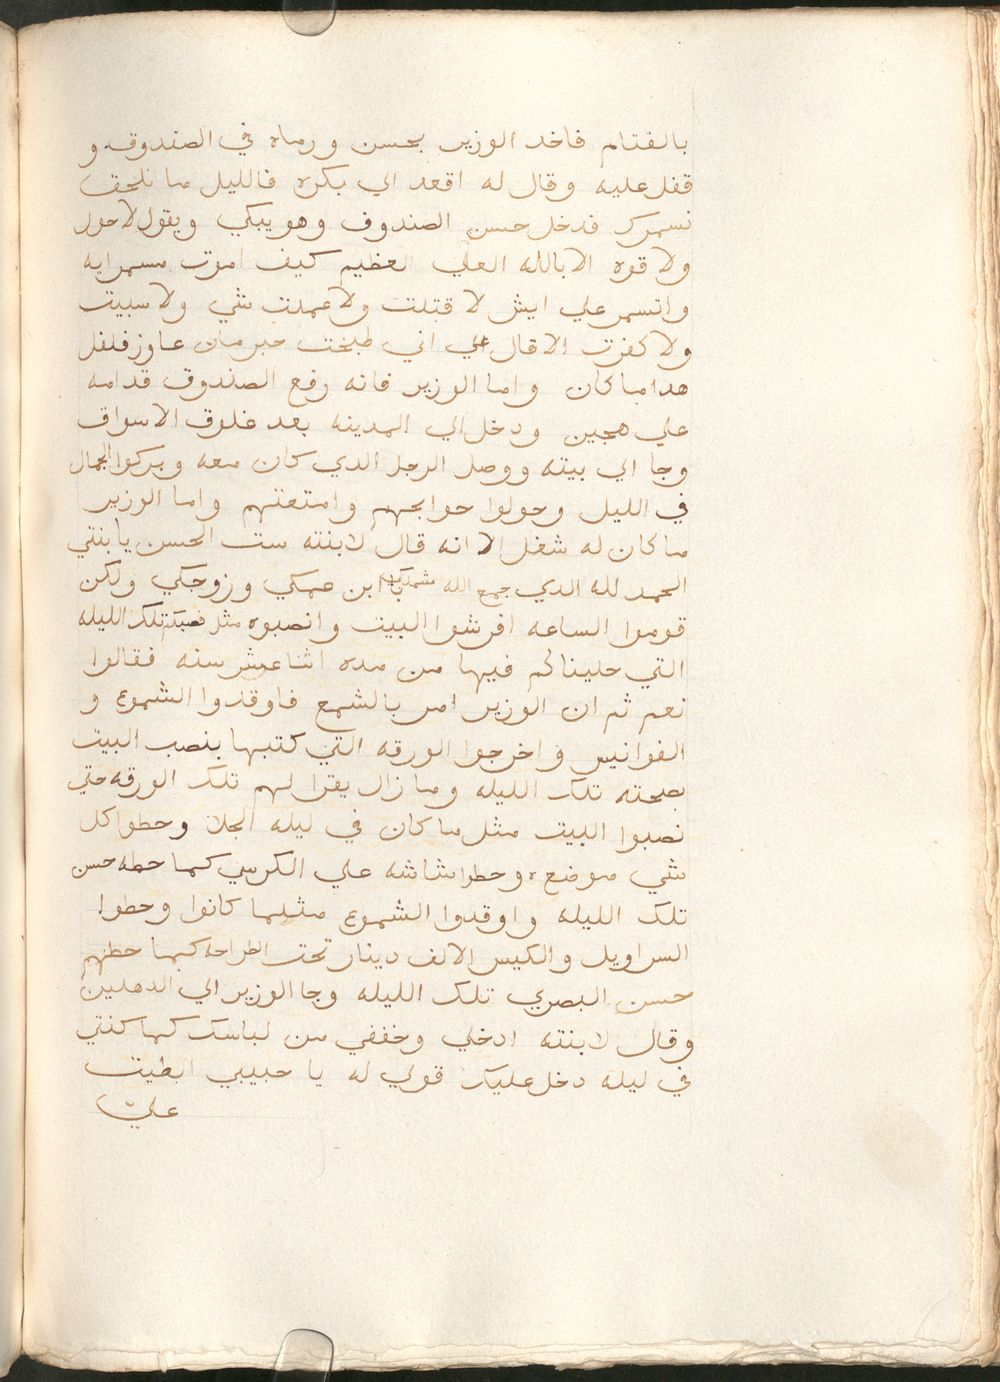 بالفتام فاخد الوزير بحسن ورماه في الصندوق و
قفل عليه وقال له اقعد الي بكره فالليل ما نلحق
نسمرك فدخل حسن الصندوف وهو يبكي ويقول لا حول
ولا قوه الا بالله العلي العظيم كيف اموت مسمر ايه
واتسمر علي ايش لا قتلت ولا عملت شي ولا سبيت
ولا كفرت الا قال لي اني طبخت حبرمان عاوز فلفل
هدا ما كان واما الوزير فانه رفع الصندوق قدامه
علي هجين ودخل الي المدينه بعد غلوق الاسواق
وجا الي بيته ووصل الرجل الدي كان معه وبركوا الجمال
في الليل وحولوا حوايجهم وامتعتهم واما الوزير
ما كان له شغل الا انه قال لابنته ست الحسن يا بنتي
الحمد لله الدي جمع الله شملكم بابن عمكي وزوجكي ولكن
قوموا الساعه افرشوا البيت وانصبوه مثل نصبتكم تلك الليله
التي جلينا لكم فيها من مده اثنا عشر سنه فقالوا
نعم ثم ان الوزير امر بالشمع فاوقدوا الشموع و
الفوانيس واخرجوا الورقه التي كتبها بنصب البيت
بصحته تلك الليله وما زال يقرا لهم تلك الورقه حتي
نصبوا البيت مثل ما كان في ليله الجلا وحطوا كل
شي موضعه وحطوا شاشه علي الكرسي كما حطه حسن
تلك الليله واوقدوا الشموع مثلما كانوا وحطوا
السراويل والكيس الالف دينار تحت الطراحه كما حطهم
حسن البصري تلك الليله وجا الوزير الي الدهليز
وقال لابنته ادخلي وخففي من لباسك كما كنتي
في ليله دخل عليك قولي له يا حبيبي ابطيت
علي